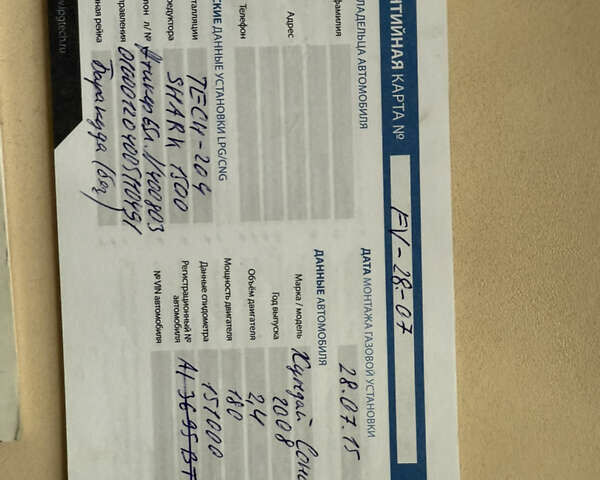 НТИЙНАЯ КАРТА № EV-28-07
ЛАДЕЛЬЦА АВТОМОБИЛЯ
фамилия
Адрес
Телефон
СКИЕ ДАННЫЕ УСТАНОВКИ LPG/CNG
талляции TECH-204
едуктора SHARK 1500
лон л/№ Атикер 65л. //400803
правления
ная рейка Барракуда (бог)
w.lpgtech.ru
ДАТА МОНТАЖА ГАЗОВОЙ УСТАНОВКИ
28.07.15
ДАННЫЕ АВТОМОБИЛЯ
Марка / модель Хундай Сона
Год выпуска 2008
Объём двигателя 2,4
Мощность двигателя 180
Данные спидометра 151000
Регистрационный № автомобиля AI 3695 BT
№ VIN автомобиля